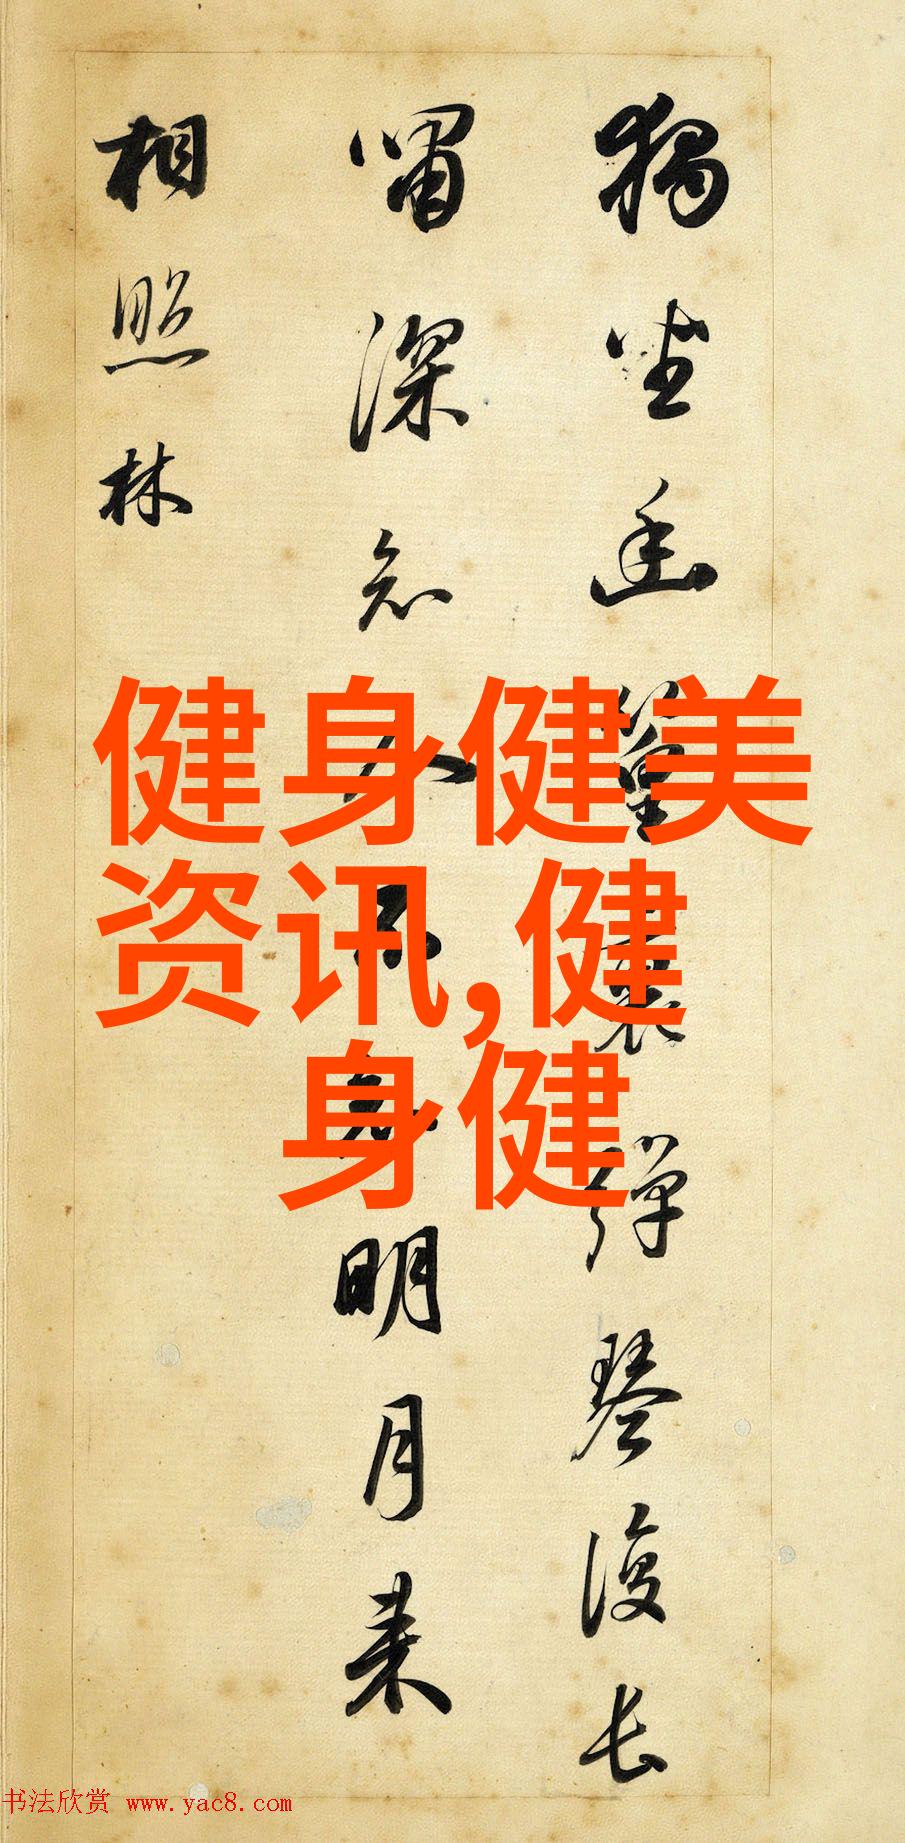 獨坐幽篁裏彈琴復長
嘯深知人不知明月来
相照林
健身健美
资讯,健
身健
书法欣赏 www.yac8.com